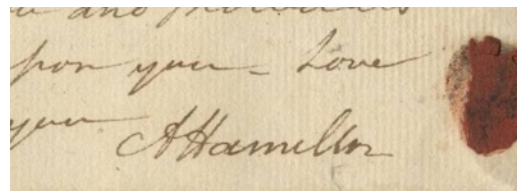 and
upon you – Love
your AHamilton